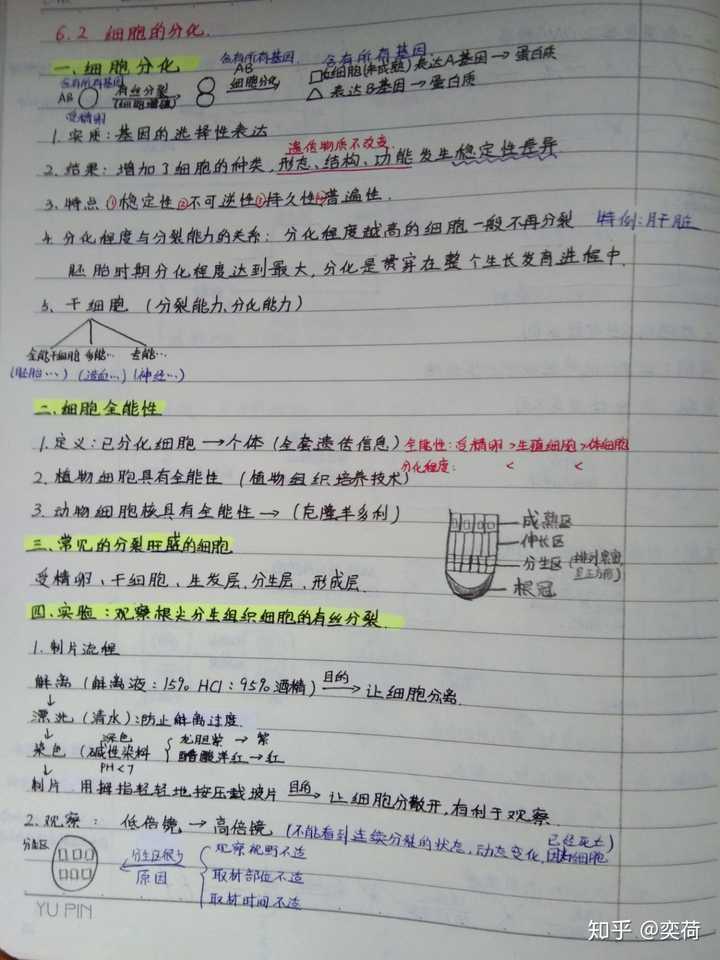 6.2 细胞的分化.
一、细胞分化
含有所有基因 AB 受精卵
有丝分裂 (细胞增殖)
含有所有基因 AB
细胞分化
含有所有基因.
□细胞(未成熟) 表达A基因→蛋白质
△ 表达B基因→蛋白质
1. 实质:基因的选择性表达
遗传物质不改变
2. 结果:增加了细胞的种类,形态、结构、功能发生稳定性差异
3. 特点 ①稳定性②不可逆性③持久性④普遍性.
4. 分化程度与分裂能力的关系:分化程度越高的细胞一般不再分裂 特例:肝脏
胚胎时期分化程度达到最大,分化是贯穿在整个生长发育进程中.
5. 干细胞 (分裂能力、分化能力)
全能干细胞 多能… 专能…
(胚胎…) (造血…) (神经…)
二、细胞全能性
1. 定义:已分化细胞→个体 (全套遗传信息) 全能性:受精卵>生殖细胞>体细胞
分化程度: < <
2. 植物细胞具有全能性 (植物组织培养技术)
3. 动物细胞核具有全能性→ (克隆羊多利)
成熟区
伸长区
分生区 (排列紧密,呈正方形)
根冠
三、常见的分裂旺盛的细胞
受精卵、干细胞、生发层、分生层、形成层.
四、实验:观察根尖分生组织细胞的有丝分裂.
1. 制片流程
解离 (解离液:15% HCl:95%酒精) 目的→ 让细胞分离.
↓
漂洗 (清水):防止解离过度.
↓
深色
染色 (碱性染料 { 龙胆紫 → 紫
PH<7 醋酸洋红→红
↓
制片 用拇指轻轻地按压载玻片 目的→ 让细胞分散开,有利于观察.
2. 观察: 低倍镜→高倍镜 (不能看到连续分裂的状态,动态变化,因为细胞已经死亡)
分生区
分生区很少
原因
观察视野不适
取材部位不适
取材时间不适
YU PIN
知乎 @奕荷